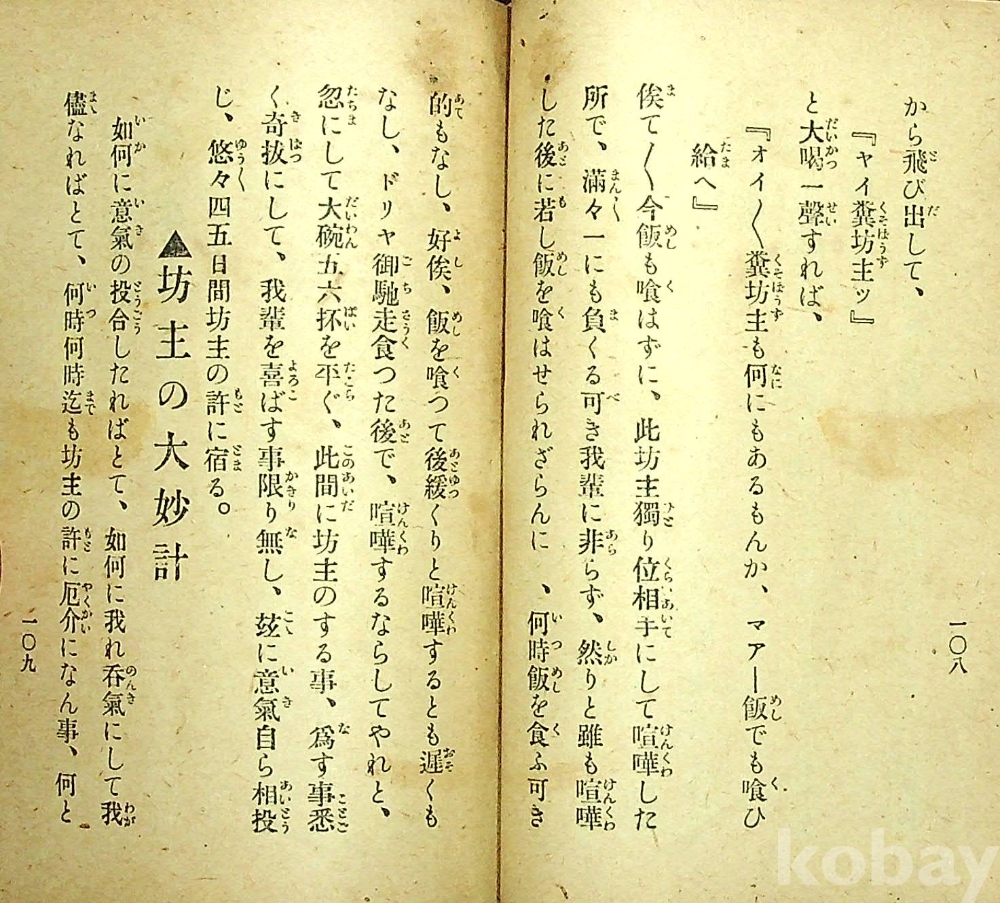 から飛び出して、
『ヤイ糞坊主ッ』
と大喝一聲すれば、
『オイ〳〵糞坊主も何にもあるもんか、マアー飯でも喰ひ
給へ』
俟て〳〵今飯も喰はずに、此坊主獨り位相手にして喧嘩した
所で、滿々一にも負くる可き我輩に非らず、然りと雖も喧嘩
した後に若し飯を喰はせられざらんに、何時飯を食ふ可き
一〇八
的もなし、好俟、飯を喰つて後緩くりと喧嘩するとも遲くも
なし、ドリヤ御馳走食つた後で、喧嘩するならしてやれと、
忽にして大碗五六抔を平ぐ、此間に坊主のする事、爲す事悉
く奇拔にして、我輩を喜ばす事限り無し、玆に意氣自ら相投
じ、悠々四五日間坊主の許に宿る。
▲坊主の大妙計
如何に意氣の投合したればとて、如何に我れ呑氣にして我
儘なればとて、何時何時迄も坊主の許に厄介になん事、何と
一〇九
kobay